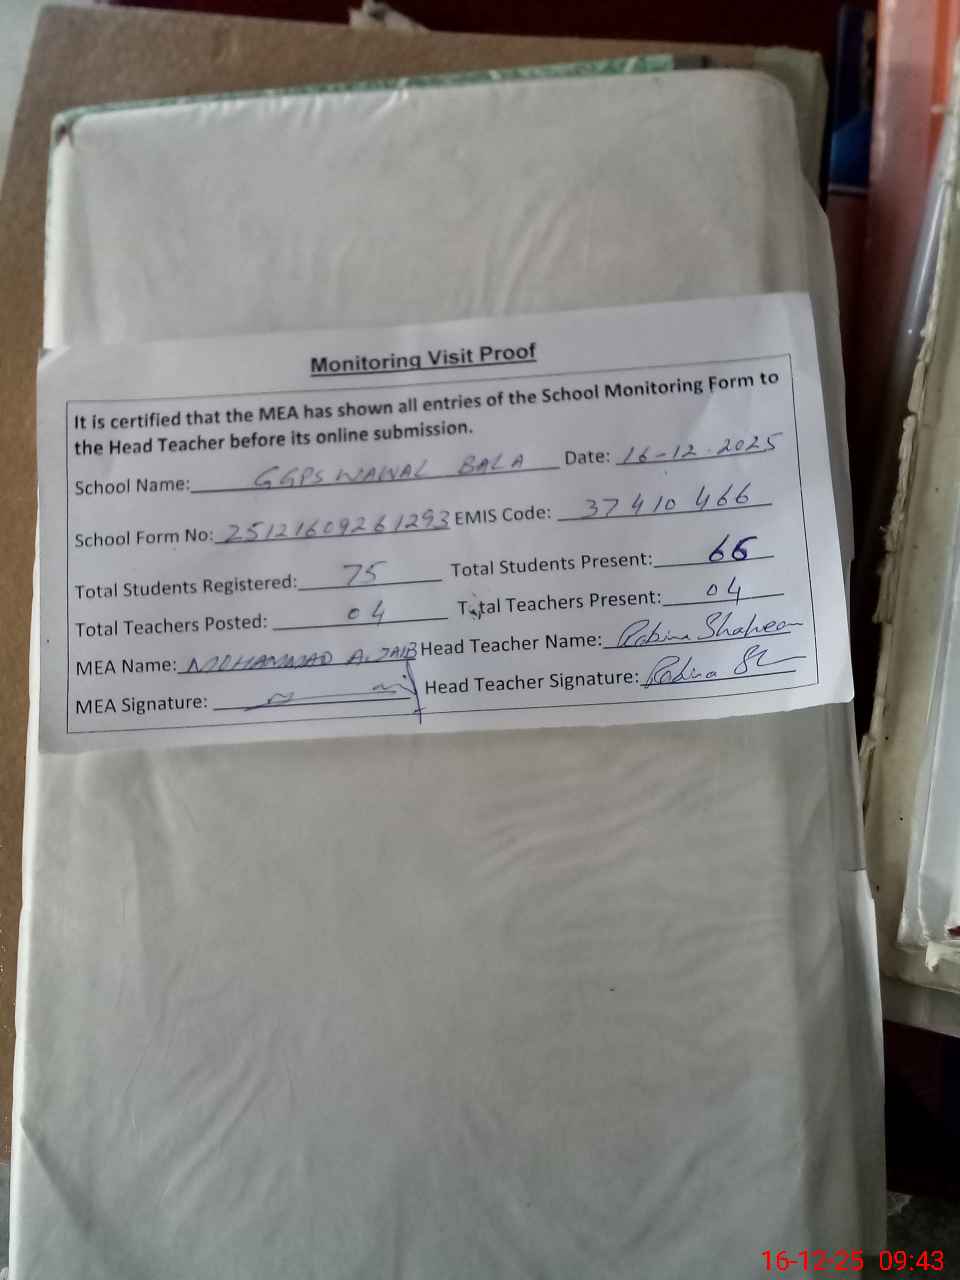 Monitoring Visit Proof
It is certified that the MEA has shown all entries of the School Monitoring Form to
the Head Teacher before its online submission.
School Name: GGPS WAWAL BALA Date: 16-12-2025
School Form No: 25121609261293 EMIS Code: 37410466
Total Students Registered: 75 Total Students Present: 66
Total Teachers Posted: 04 Total Teachers Present: 04
MEA Name: MOHAMMAD A. ZAIB Head Teacher Name: Robina Shaheen
MEA Signature: Head Teacher Signature: Robina
16-12-25 09:43